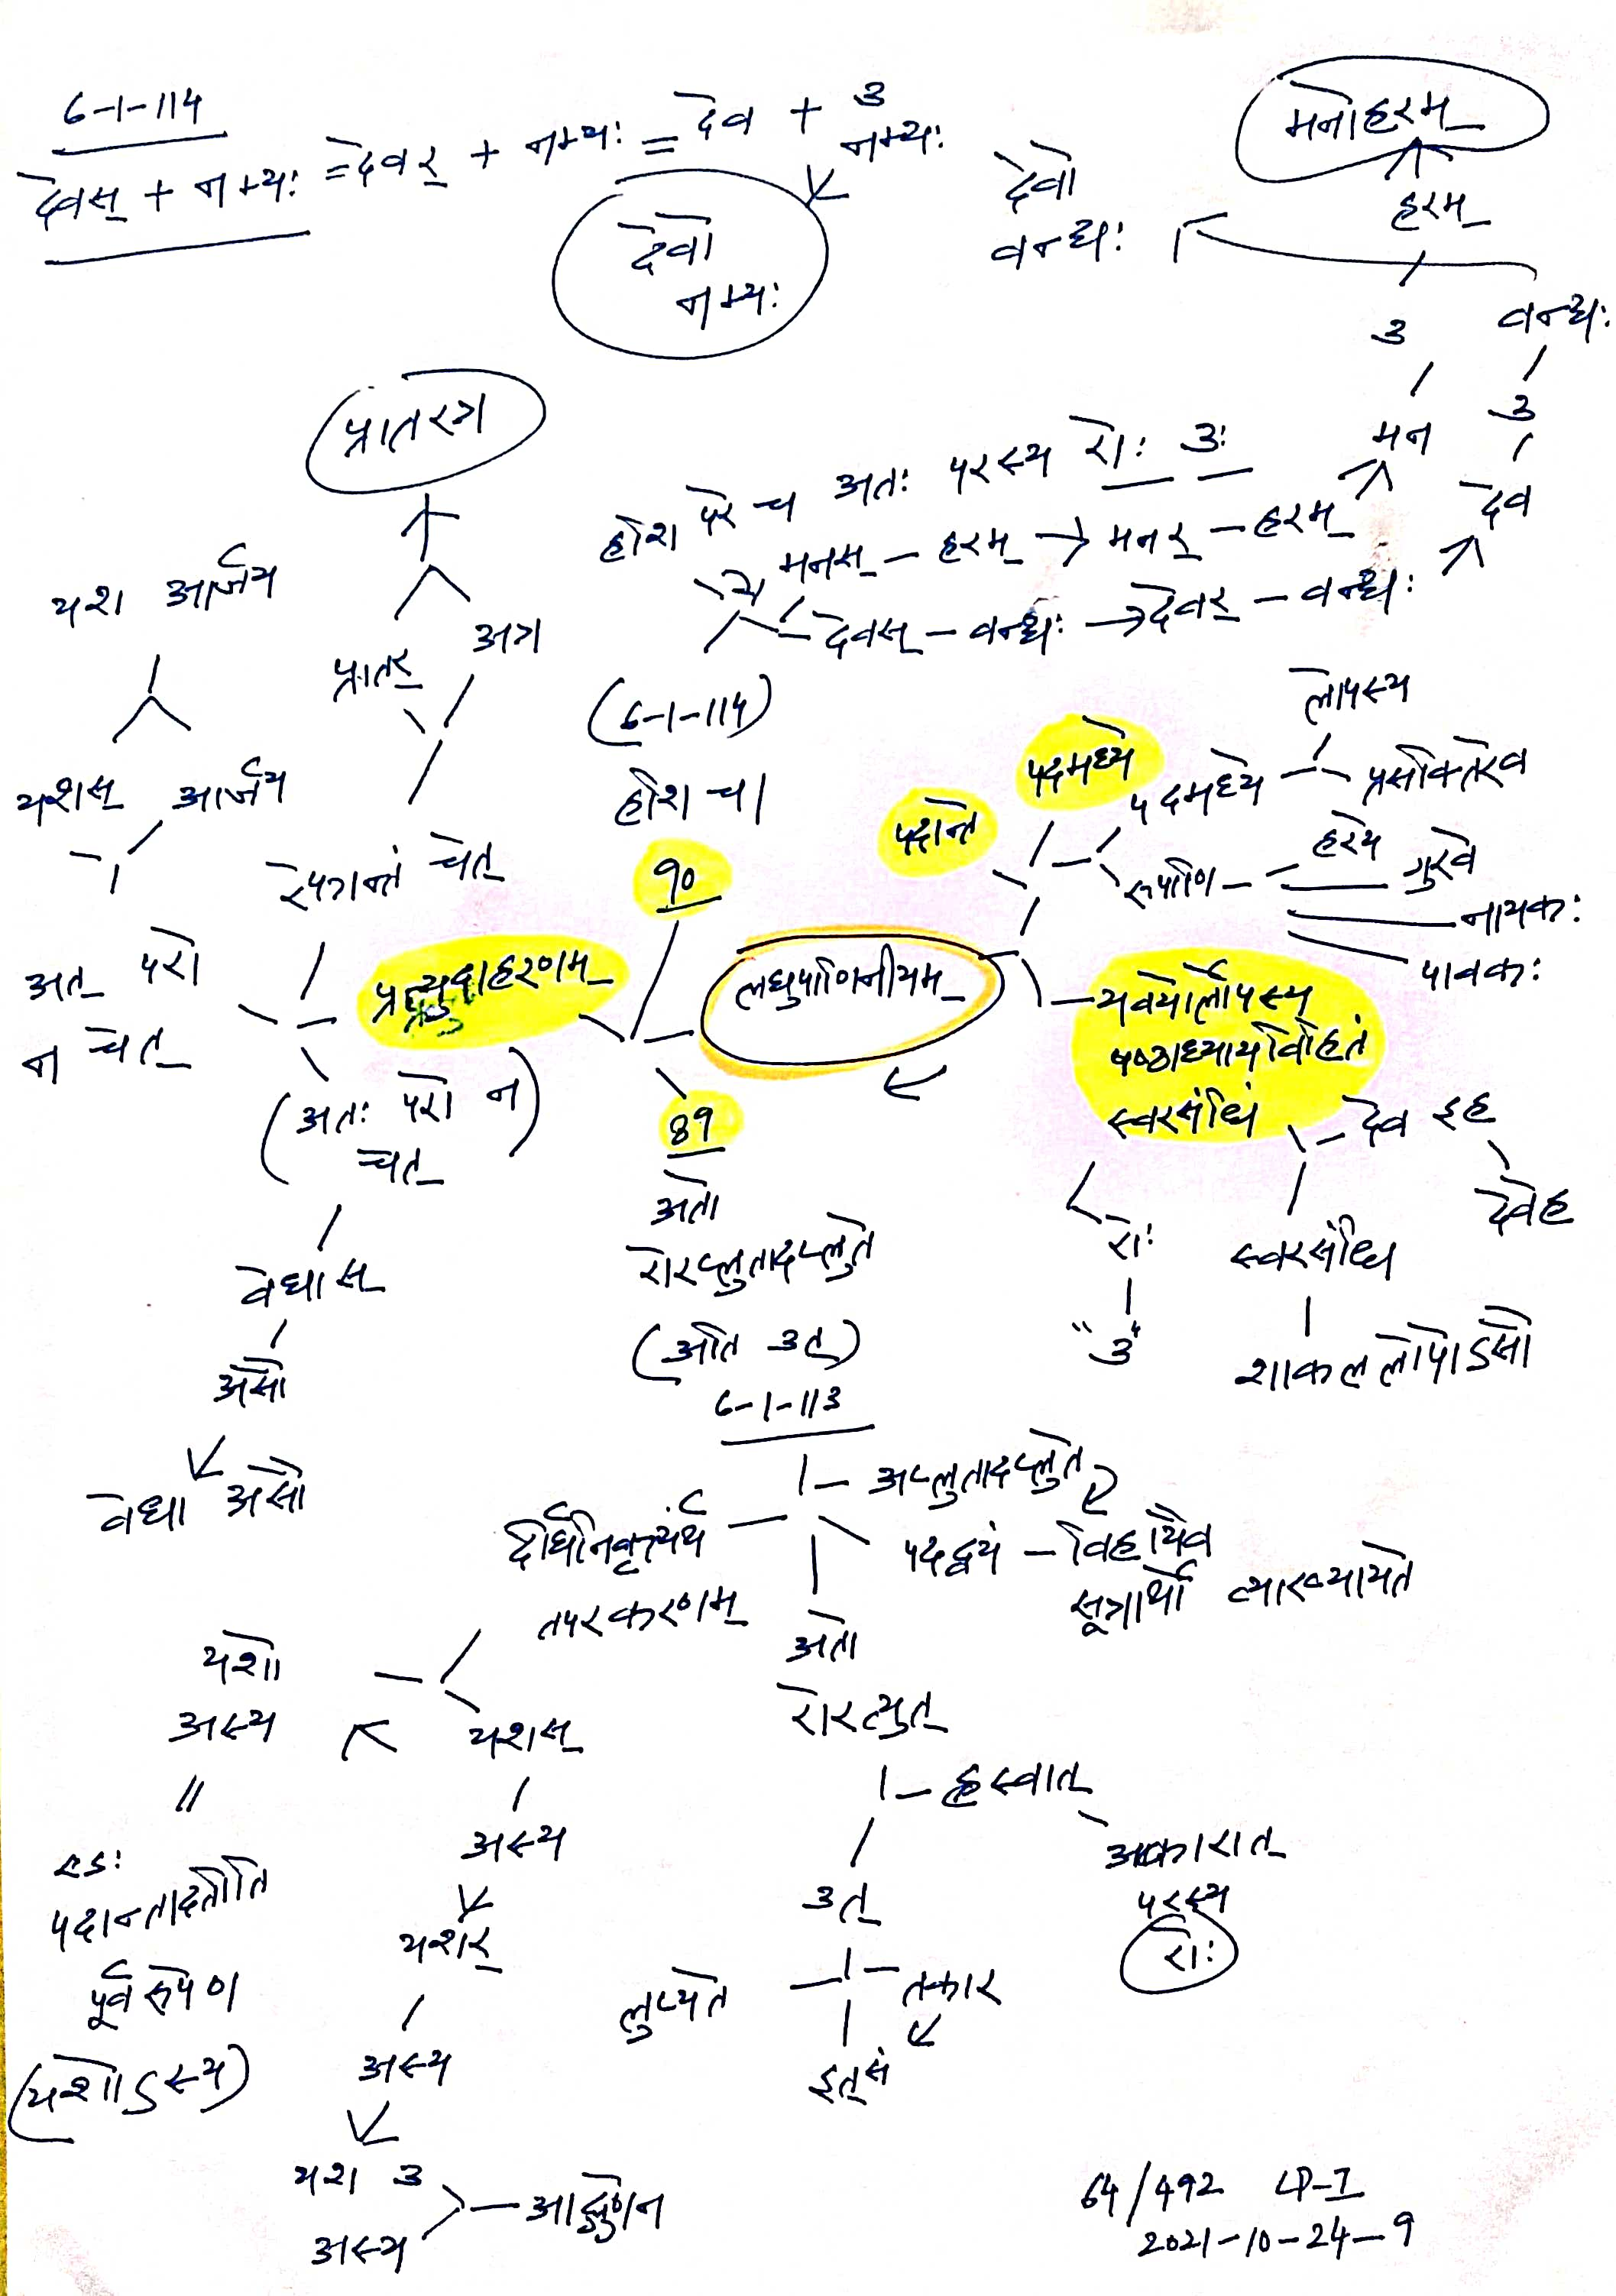 6-1-114
देवस् + नम्यः = देवर् + नम्यः = देव + उ
नम्यः
देवो
नम्यः
देवो
वन्द्यः
मनोहरम्
हरम्
उ
मन
वन्द्यः
उ
देव
हशि परे च अतः परस्य रोः उः
मनस् - हरम् → मनर् - हरम्
देवस् - वन्द्यः → देवर् - वन्द्यः
(6-1-114)
हशि च।
प्रातरत्र
प्रातर्
अत्र
रेफान्तं चेत्
यश आर्जय
यशस् आर्जय
अत् परो
न चेत्
प्रत्युदाहरणम्
(अतः परो न
चेत्)
वेधास्
असौ
वेधा असौ
90
लघुपाणिनीयम्
89
अतो
रोरप्लुतादप्लुते
(अति उत्)
6-1-113
अप्लुतादप्लुते
पदद्वयं - विहायैव
सूत्रार्थो व्याख्यायते
दीर्घनिवृत्त्यर्थं
तपरकरणम्
यशो
अस्य
॥
एङः
पदान्तादतीति
पूर्वरूपेण
(यशोऽस्य)
यशस्
अस्य
यशर्
अस्य
यश उ
अस्य
आद्गुणेन
अतो
रोरत्युत्
ह्रस्वात्
अकारात्
परस्य
रोः
उत्
लुप्यते
तकार
इत्सं
पदान्ते
पदमध्ये
पदमध्ये
लोपस्य
प्रसक्तिरेव
रूपाणि
हरये
गुरवे
नायकः
पावकः
यवयोर्लोपस्य
षष्ठाध्यायविहितं
स्वरसंधिं
देव इह
देवेह
रोः
"उ"
स्वरसंधि
शाकल लोपोऽसौ
64/492 LP-I
2021-10-24-9